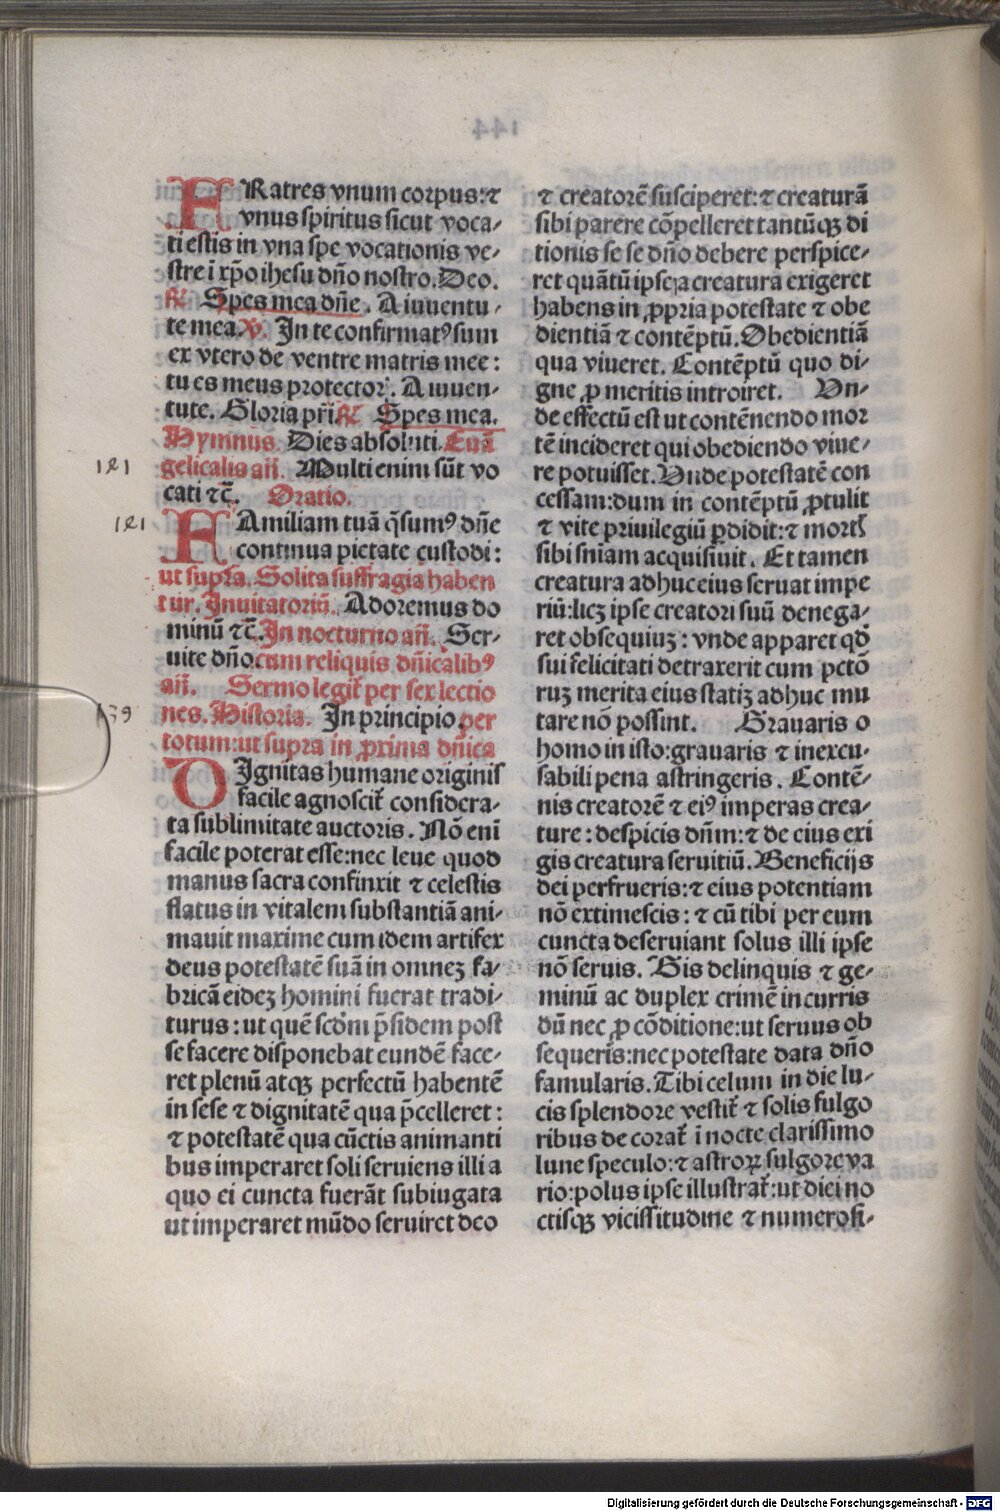 FRatres vnum corpus:⁊
vnus spiritus sicut voca⸗
ti estis in vna spe vocationis ve⸗
stre ī xp̄o ihesu dn̄o nostro. Deo.
℟ Spes mea dn̄e. A iuuentu⸗
te mea. ℣. In te confirmatꝰ sum
ex vtero de ventre matris mee:
tu es meus protector. A iuuen⸗
tute. Gloria pr̄i. ℟ Spes mea.
Hymnus. Dies absoluti. Euā
gelicalis añ. Multi enim sūt vo
cati ⁊c̄. Oratio.
FAmiliam tuā q̄sumꝰ dn̄e
continua pietate custodi:
ut supra. Solita suffragia haben
tur. Inuitatoriū. Adoremus do
minū ⁊c̄. In nocturno añ. Ser⸗
uite dn̄o. cum reliquis dn̄icalibꝰ
añ. Sermo legit̄ per sex lectio
nes. Historia. In principio. per
totum: ut supra in ꝓrima dn̄ica
DIgnitas humane originis
facile agnoscit̄ considera⸗
ta sublimitate auctoris. Nō eni
facile poterat esse: nec leue quod
manus sacra confinxit ⁊ celestis
flatus in vitalem substantiā ani⸗
mauit maxime cum idem artifex
deus potestatē suā in omneꝫ fa⸗
bricā eideꝫ homini fuerat tradi⸗
turus: ut quē scdm̄ p̄sidem post
se facere disponebat eundē face⸗
ret plenū atqꝫ perfectū habentē
in sese ⁊ dignitatē qua p̄celleret:
⁊ potestatē qua cūctis animanti
bus imperaret soli seruiens illi a
quo ei cuncta fuerāt subiugata
ut imperaret mūdo seruiret deo
⁊ creatorē susciperet: ⁊ creaturā
sibi parere cōpelleret tantūqꝫ di
tionis se se dn̄o debere perspice⸗
ret quātū ipse ⁊a creatura exigeret
habens in ꝓpria potestate ⁊ obe
dientiā ⁊ contēptū. Obedientiā
qua viueret. Contēptū quo di⸗
gne ꝓ meritis introiret. Un⸗
de effectū est ut contēnendo mor
tē incideret qui obediendo viue⸗
re potuisset. Unde potestatē con
cessam: dum in contēptū ꝓtulit
⁊ vite priuilegiū ꝑdidit: ⁊ mortis
sibi sn̄iam acquisiuit. Et tamen
creatura adhuc eius seruat impe
riū: licꝫ ipse creatori suū denega⸗
ret obsequiuꝫ: vnde apparet qd̄
sui felicitati detraxerit cum pctō
ruꝫ merita eius statiꝫ adhuc mu
tare nō possint. Grauaris o
homo in isto: grauaris ⁊ inexcu⸗
sabili pena astringeris. Contē⸗
nis creatorē ⁊ eiꝰ imperas crea⸗
ture: despicis dn̄m: ⁊ de eius exi
gis creatura seruitiū. Beneficijs
dei perfrueris: ⁊ eius potentiam
nō extimescis: ⁊ cū tibi per eum
cuncta deseruiant solus illi ipse
nō seruis. Bis delinquis ⁊ ge⸗
minū ac duplex crimē incurris
dū nec ꝓ cōditione: ut seruus ob
sequeris: nec potestate data dn̄o
famularis. Tibi celum in die lu⸗
cis splendore vestit̄ ⁊ solis fulgo
ribus decorat̄ ī nocte clarissimo
lune speculo: ⁊ astroꝝ fulgore va
rio: polus ipse illustrat̄: ut diei no
ctisqꝫ vicissitudine ⁊ numerosi⸗
121
121
139
Digitalisierung gefördert durch die Deutsche Forschungsgemeinschaft - DFG